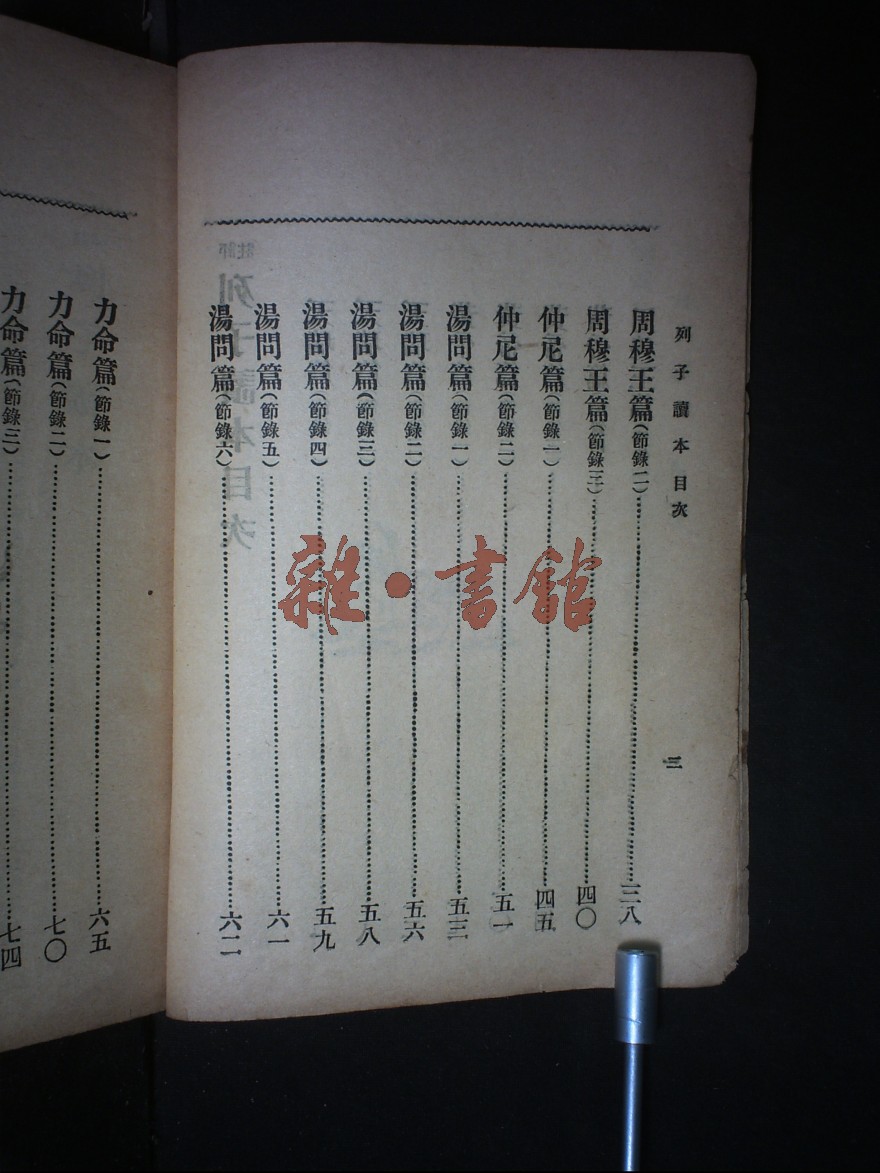 列子讀本目次
三
周穆王篇(節錄二)……三八
周穆王篇(節錄三)……四〇
仲尼篇(節錄一)……四五
仲尼篇(節錄二)……五一
湯問篇(節錄一)……五三
湯問篇(節錄二)……五六
湯問篇(節錄三)……五八
湯問篇(節錄四)……五九
湯問篇(節錄五)……六一
湯問篇(節錄六)……六二
力命篇(節錄一)……六五
力命篇(節錄二)……七〇
力命篇(節錄三)……七四
雜·書館